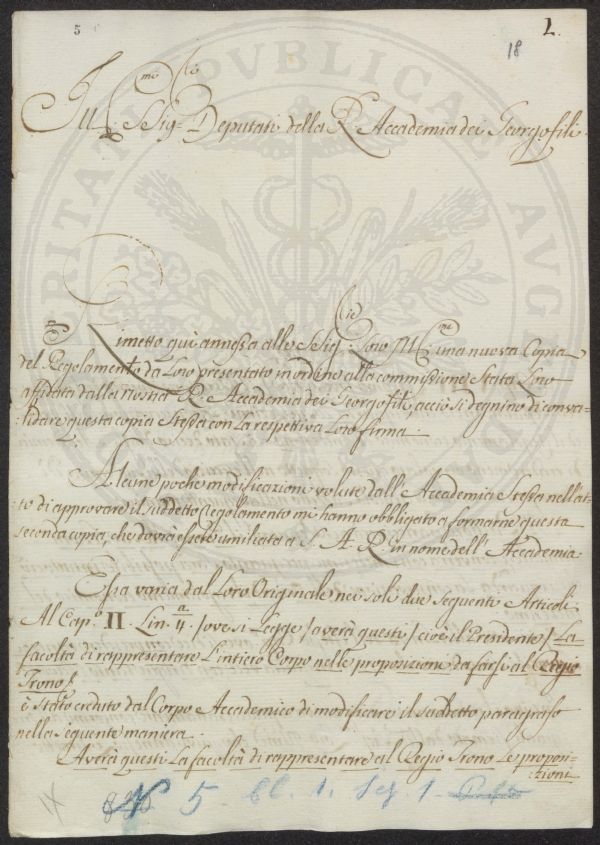 5
L.
18
Ill.mi SSig.ri Deputati della R. Accademia dei Georgofili.
Rimetto quì annessa alle SSig.rie Loro Ill.me una nuova Copia
del Regolamento da Loro presentato in ordine alla commissione Stata Loro
affidata dalla nostra R. Accademia dei Georgofili, acciò si degnino di conva-
:lidare questa copia Stessa con la respetiva Loro firma.
Alcune poche modificazioni volute dall'Accademia Stessa nell'at-
to di approvare il suddetto Regolamento mi hanno obbligato a formarne questa
seconda copia, che dovrà essere umiliata a S. A. R. in nome dell'Accademia.
Essa varia dal Loro Originale nei soli due seguenti Articoli.
Al Cap.o II. Lin.a 4 /ove si Legge/ averà questi / cioè il Presidente / La
facoltà di rappresentare L'intiero Corpo nelle proposizioni da farsi al Regio
Trono/.
è stato creduto dal Corpo Accademico di modificare il suddetto paragrafo
nella seguente maniera.
Averà questi La facoltà di rappresentare al Regio Trono Le proposi-
:zioni
IX
N 5 Cl. 1. Sez. 1.
VERITATI PVBLICAE AVGENDAE